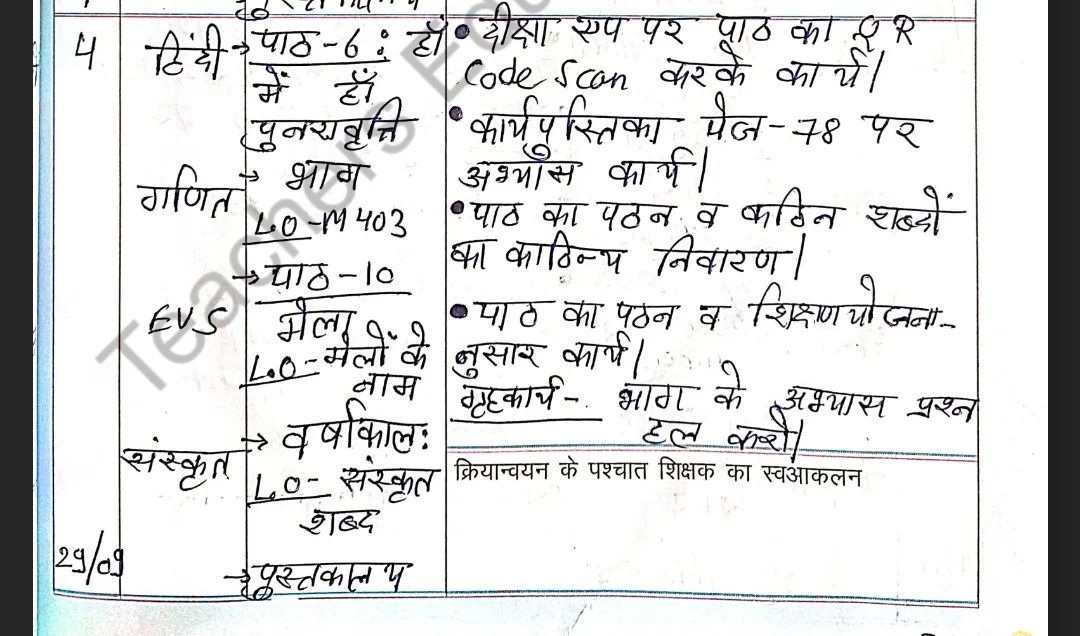 4
हिंदी
→ पाठ-6 : हाँ
में हाँ
पुनरावृत्ति
गणित
→ भाग
L.O-M403
EVS
→ पाठ-10
मेला
L.O- मेलों के
नाम
संस्कृत
→ वर्षाकाल:
L.O- संस्कृत
शब्द
29/09
→ पुस्तकालय
• दीक्षा एप पर पाठ का QR
Code Scan करके कार्य।
• कार्यपुस्तिका पेज-78 पर
अभ्यास कार्य।
• पाठ का पठन व कठिन शब्दों
का काठिन्य निवारण।
• पाठ का पठन व शिक्षणयोजना-
नुसार कार्य।
गृहकार्य- भाग के अभ्यास प्रश्न
हल करो।
क्रियान्वयन के पश्चात शिक्षक का स्वआकलन
Teachers